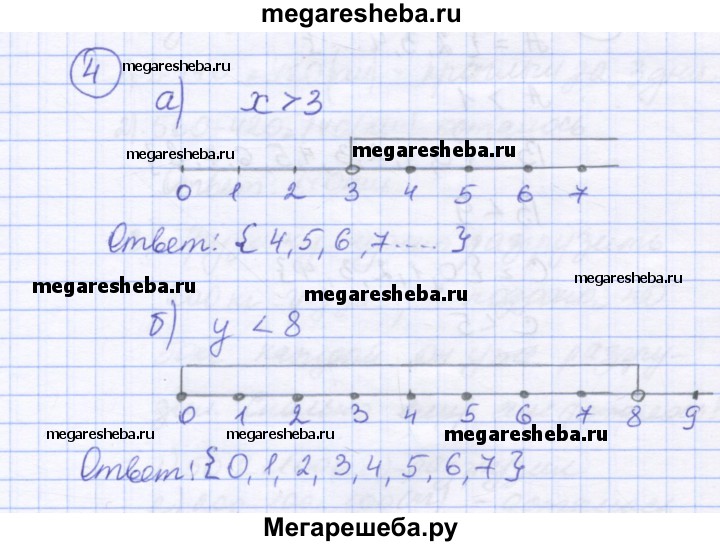 megaresheba.ru
4 megaresheba.ru megaresheba.ru
а) x > 3
megaresheba.ru megaresheba.ru
0 1 2 3 4 5 6 7
Ответ: { 4, 5, 6, 7.... }
megaresheba.ru megaresheba.ru megaresheba.ru
б) y < 8
0 1 2 3 4 5 6 7 8 9
megaresheba.ru megaresheba.ru megaresheba.ru megaresheba.ru
Ответ: {0, 1, 2, 3, 4, 5, 6, 7 }
Мегарешеба.ру